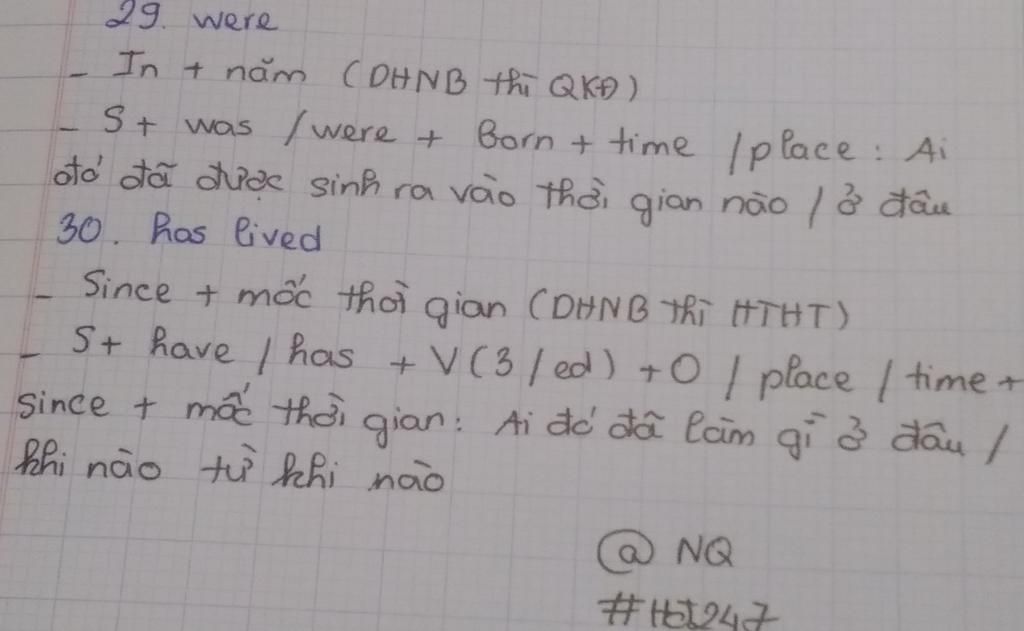 29. were
- In + năm (DHNB thì QKĐ)
- S + was / were + Born + time / place : Ai
đó đã được sinh ra vào thời gian nào / ở đâu
30. has lived
- Since + mốc thời gian (DHNB thì HTHT)
- S + have / has + V(3/ed) + O / place / time +
since + mốc thời gian: Ai đó đã làm gì ở đâu /
khi nào từ khi nào
@ NQ